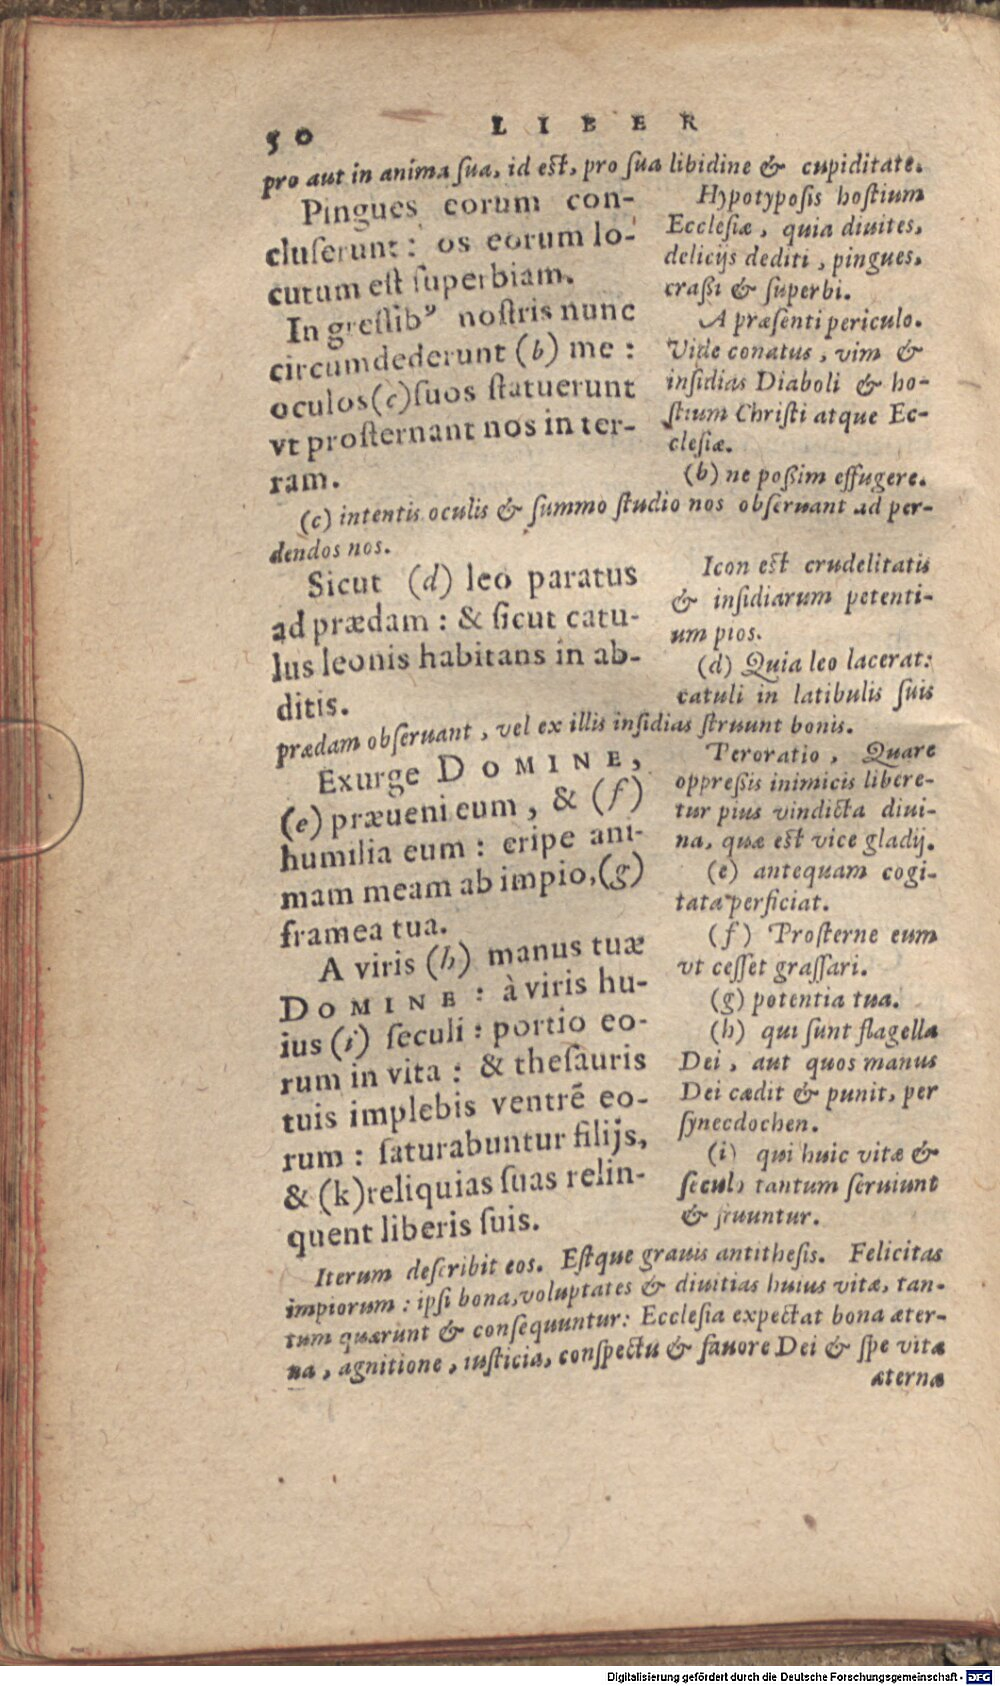 50 LIBER
pro aut in anima ſua, id eſt, pro ſua libidine & cupiditate.
Pingues eorum con-
cluſerunt: os eorum lo-
cutum eſt ſuperbiam.
In greſſibꝰ noſtris nunc
circumdederunt (b) me:
oculos (c) ſuos ſtatuerunt
vt proſternant nos in ter-
ram.
Hypotypoſis hoſtium
Eccleſiæ, quia diuites,
delicijs dediti, pingues,
craßi & ſuperbi.
A præſenti periculo.
Vide conatus, vim &
inſidias Diaboli & ho-
ſtium Chriſti atque Ec-
cleſiæ.
(b) ne poßim effugere.
(c) intentis oculis & ſummo ſtudio nos obſeruant ad per-
dendos nos.
Sicut (d) leo paratus
ad prædam: & ſicut catu-
lus leonis habitans in ab-
ditis.
Icon eſt crudelitatis
& inſidiarum petenti-
um pios.
(d) Quia leo lacerat:
catuli in latibulis ſuis
prædam obſeruant, vel ex illis inſidias ſtruunt bonis.
Exurge DOMINE,
(e) præueni eum, & (f)
humilia eum: eripe ani-
mam meam ab impio, (g)
framea tua.
A viris (h) manus tuæ
DOMINE: à viris hu-
ius (i) ſeculi: portio eo-
rum in vita: & theſauris
tuis implebis ventrē eo-
rum: ſaturabuntur filijs,
& (k) reliquias ſuas relin-
quent liberis ſuis.
Peroratio, Quare
oppreßis inimicis libere-
tur pius vindicta diui-
na, quæ eſt vice gladij.
(e) antequam cogi-
tata perficiat.
(f) Proſterne eum
vt ceſſet graſſari.
(g) potentia tua.
(h) qui ſunt flagella
Dei, aut quos manus
Dei cædit & punit, per
ſynecdochen.
(i) qui huic vitæ &
ſeculo tantum ſeruiunt
& fruuntur.
Iterum deſcribit eos. Eſtque grauis antitheſis. Felicitas
impiorum: ipſi bona, voluptates & diuitias huius vitæ, tan-
tum quærunt & conſequuntur: Eccleſia expectat bona æter-
na, agnitione, iuſticia, conſpectu & fauore Dei & ſpe vitæ
æternæ
Digitalisierung gefördert durch die Deutsche Forschungsgemeinschaft - DFG